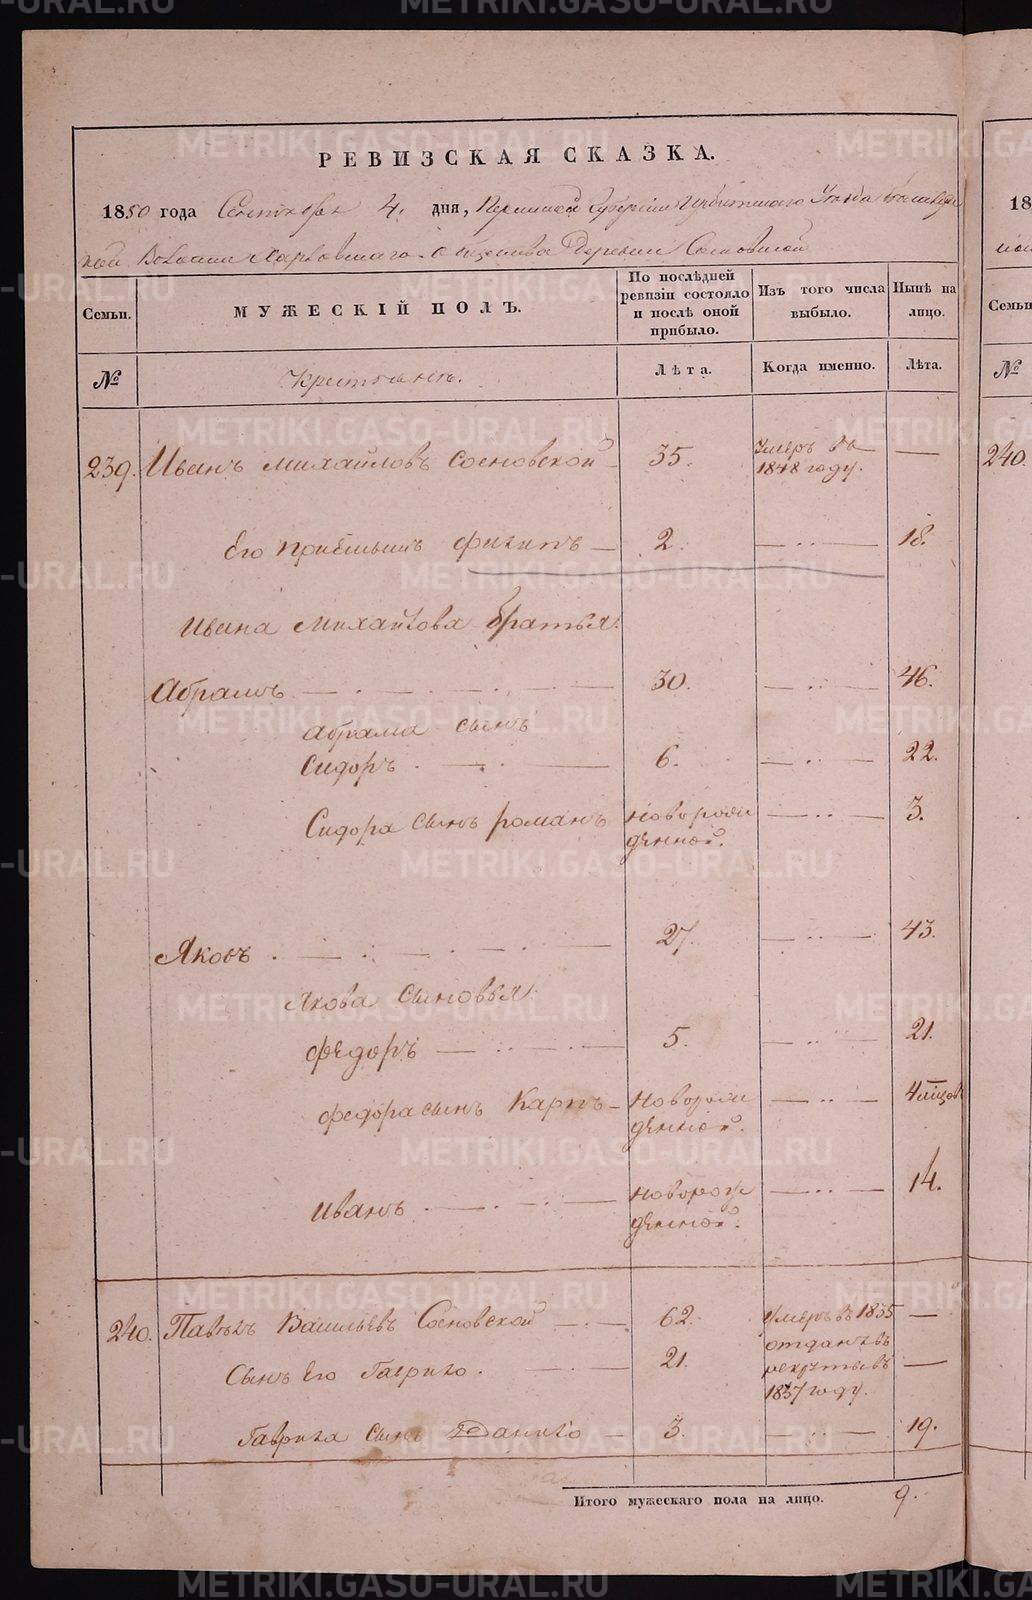 METRIKI.GASO-URAL.RU
РЕВИЗСКАЯ СКАЗКА.
1850 года Сентября 4. дня, Пермской Губернии Ирбитского Уезда
кой Волости Харловского общества Деревни Сосновской
Семьи. МУЖЕСКІЙ ПОЛЪ. По послѣдней ревизіи состояло и послѣ оной прибыло. Изъ того числа выбыло. Нынѣ на лицо.
№ Крестьянъ. Лѣта. Когда именно. Лѣта.
239. Иванъ Михайловъ Сосновской 35. Умеръ въ 1848 году. —
Его приемышъ Филипъ — 2. — 18.
Ивана Михайлова братья:
Абрамъ 30. — 46.
Абрама сынъ
Сидоръ 6. — 22.
Сидора сынъ Романъ новорожденной. — 3.
Яковъ 27. — 43.
Якова сыновья:
Федоръ 5. — 21.
Федора сынъ Карпъ новорожденной. — 4 мѣсяцовъ
Иванъ новорожденной. — 14.
240. Павелъ Васильевъ Сосновской 62. Умеръ въ 1835 —
Сынъ Его Гаврило. 21. отданъ въ рекруты въ 1837 году. —
Гаврила сынъ Данило — 3. — 19.
Итого мужескаго пола на лицо. 9.
18
Семьи
№
240.